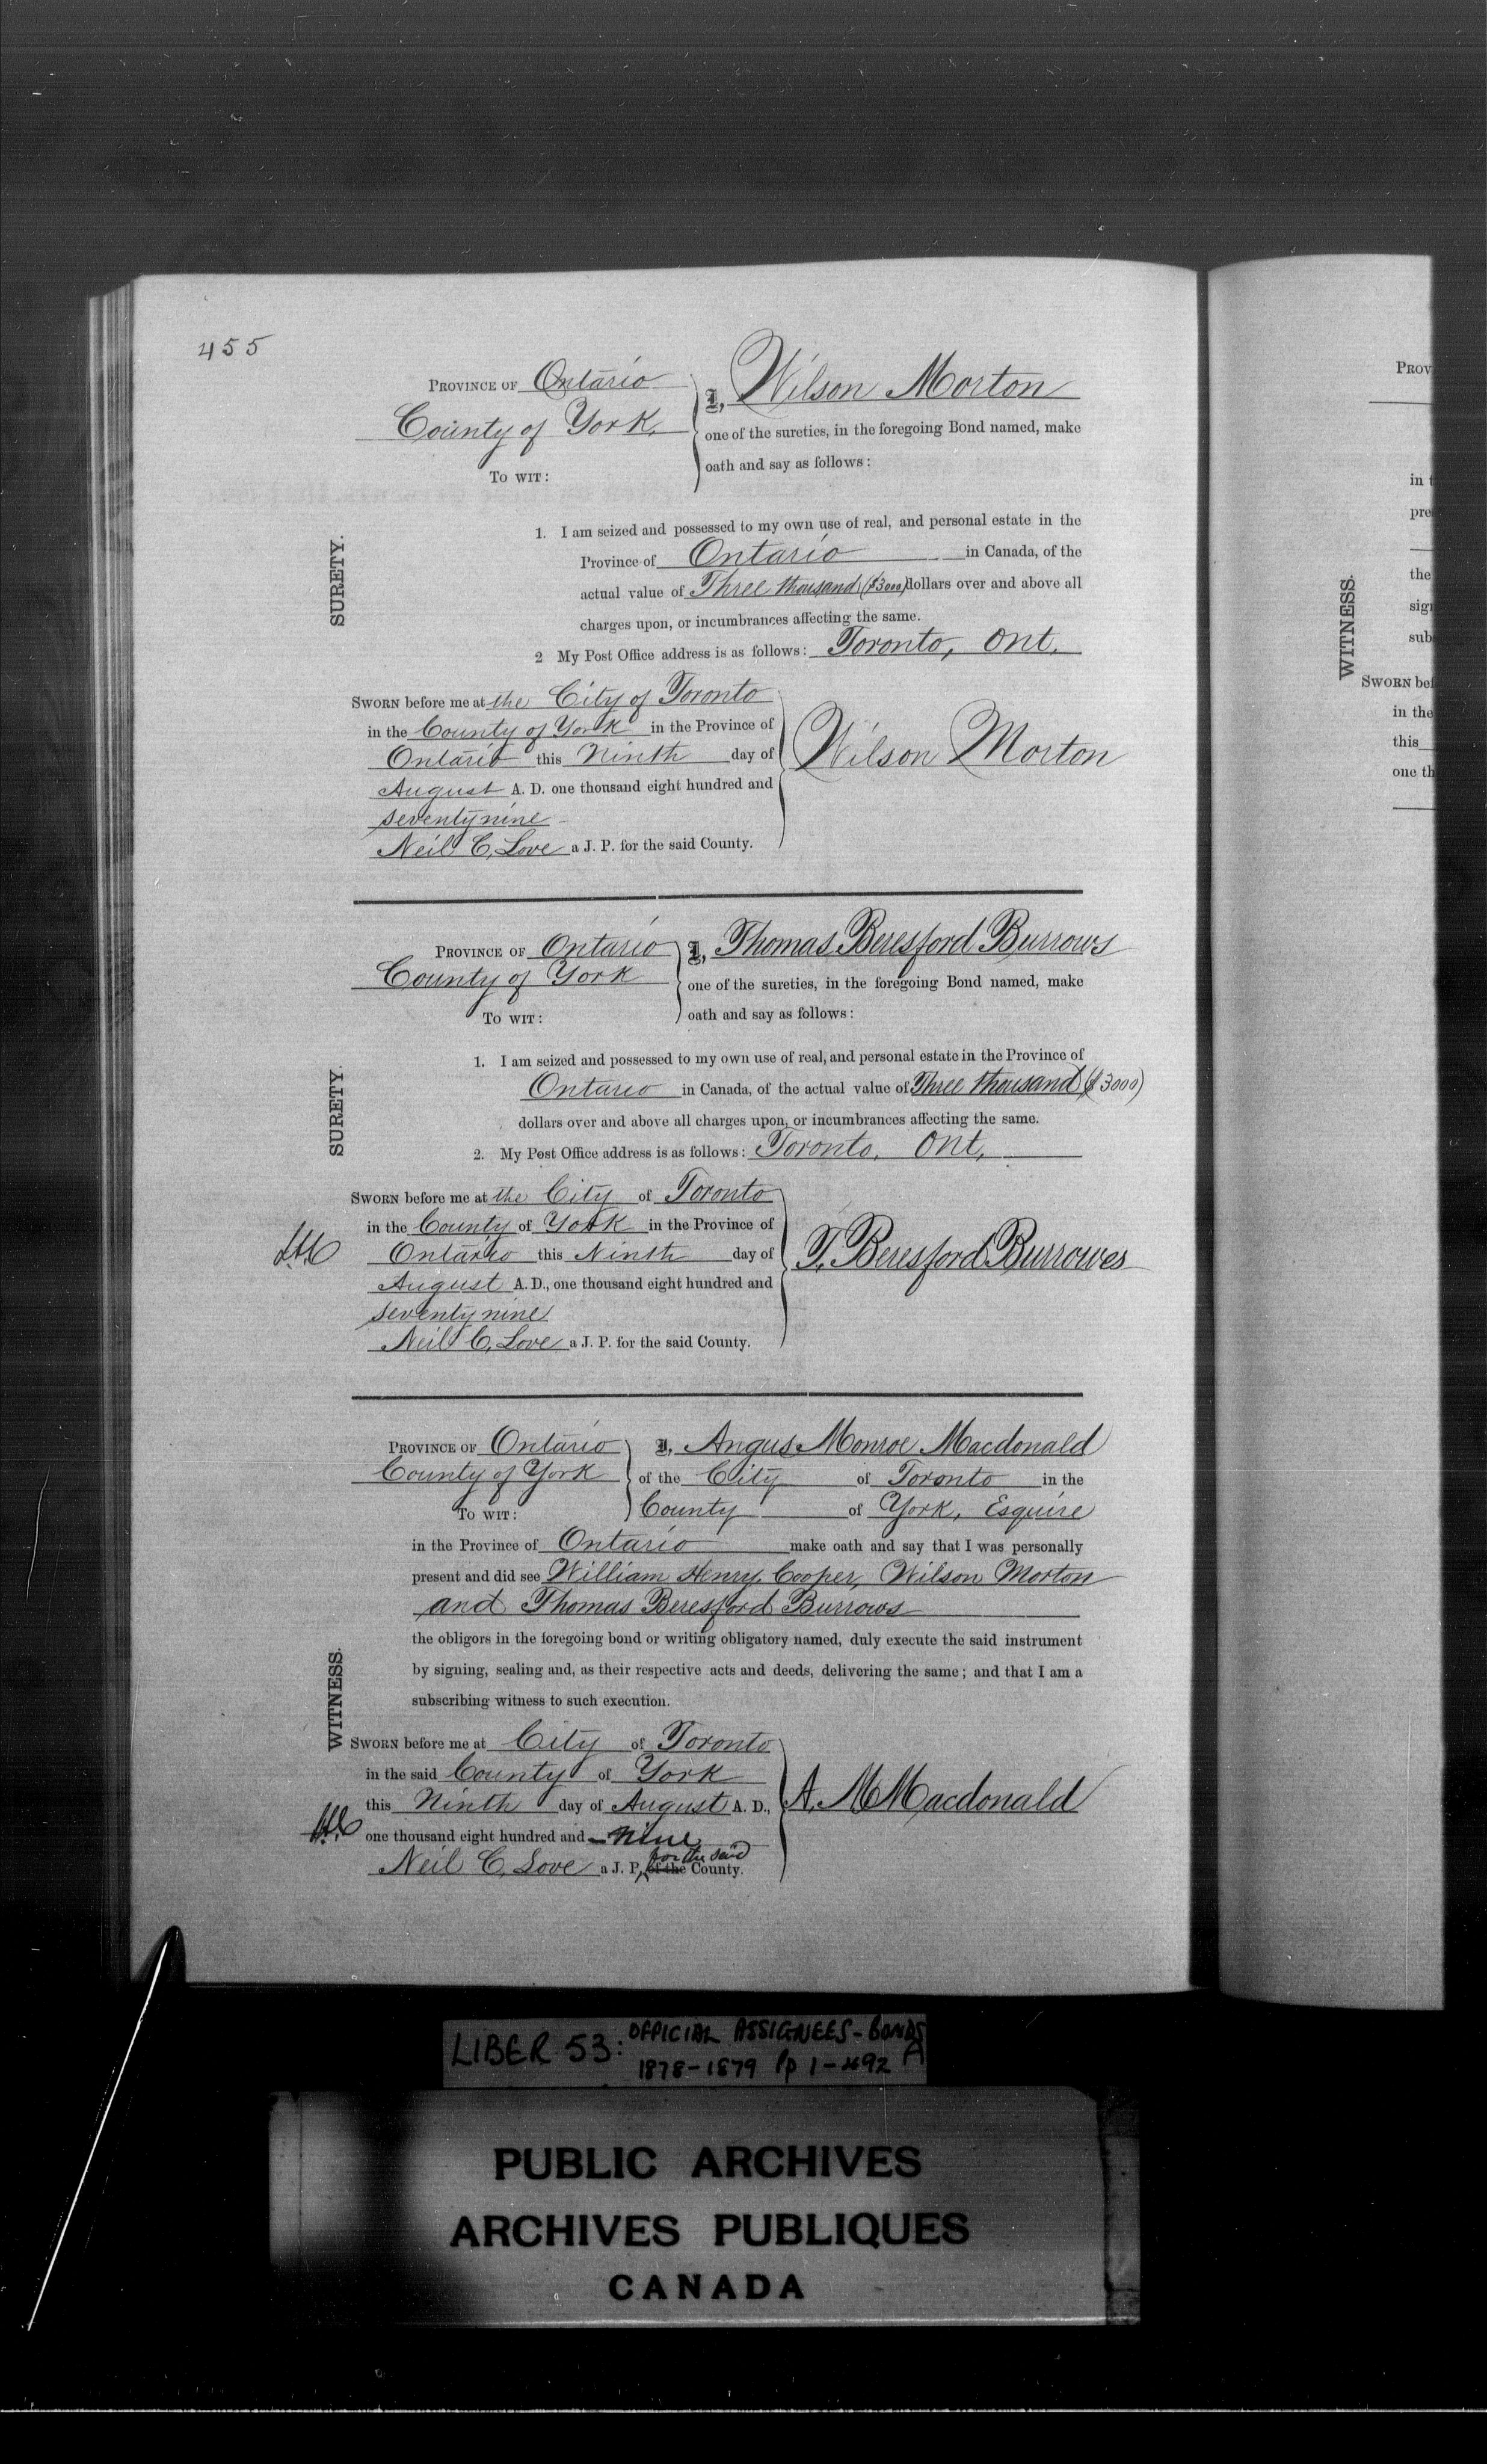 455
PROVINCE OF Ontario
County of York,
TO WIT:
I, Wilson Morton
one of the sureties, in the foregoing Bond named, make
oath and say as follows:
SURETY.
1. I am seized and possessed to my own use of real, and personal estate in the
Province of Ontario in Canada, of the
actual value of Three thousand ($3000) dollars over and above all
charges upon, or incumbrances affecting the same.
2 My Post Office address is as follows: Toronto, Ont.
SWORN before me at the City of Toronto
in the County of York in the Province of
Ontario this Ninth day of
August A. D. one thousand eight hundred and
seventy nine
Neil C. Love a J. P. for the said County.
Wilson Morton
PROVINCE OF Ontario
County of York
TO WIT:
I, Thomas Beresford Burrows
one of the sureties, in the foregoing Bond named, make
oath and say as follows:
SURETY.
1. I am seized and possessed to my own use of real, and personal estate in the Province of
Ontario in Canada, of the actual value of Three thousand ($3000)
dollars over and above all charges upon, or incumbrances affecting the same.
2. My Post Office address is as follows: Toronto, Ont.
SWORN before me at the City of Toronto
in the County of York in the Province of
Ontario this Ninth day of
August A. D., one thousand eight hundred and
seventy nine
Neil C. Love a J. P. for the said County.
T. Beresford Burrowes
PROVINCE OF Ontario
County of York
TO WIT:
I, Angus Monroe Macdonald
of the City of Toronto in the
County of York, Esquire
in the Province of Ontario make oath and say that I was personally
present and did see William Henry Cooper, Wilson Morton
and Thomas Beresford Burrows
the obligors in the foregoing bond or writing obligatory named, duly execute the said instrument
by signing, sealing and, as their respective acts and deeds, delivering the same; and that I am a
subscribing witness to such execution.
WITNESS.
SWORN before me at City of Toronto
in the said County of York
this Ninth day of August A. D.,
one thousand eight hundred and nine
for the said
Neil C. Love a J. P. of the County.
A. M. Macdonald
PROV
in t
pre
the
sig
sub
WITNESS.
SWORN bef
in the
this
one th
LIBER 53: OFFICIAL ASSIGNEES - BONDS
1878-1879 Pp 1-492 A
PUBLIC ARCHIVES
ARCHIVES PUBLIQUES
CANADA